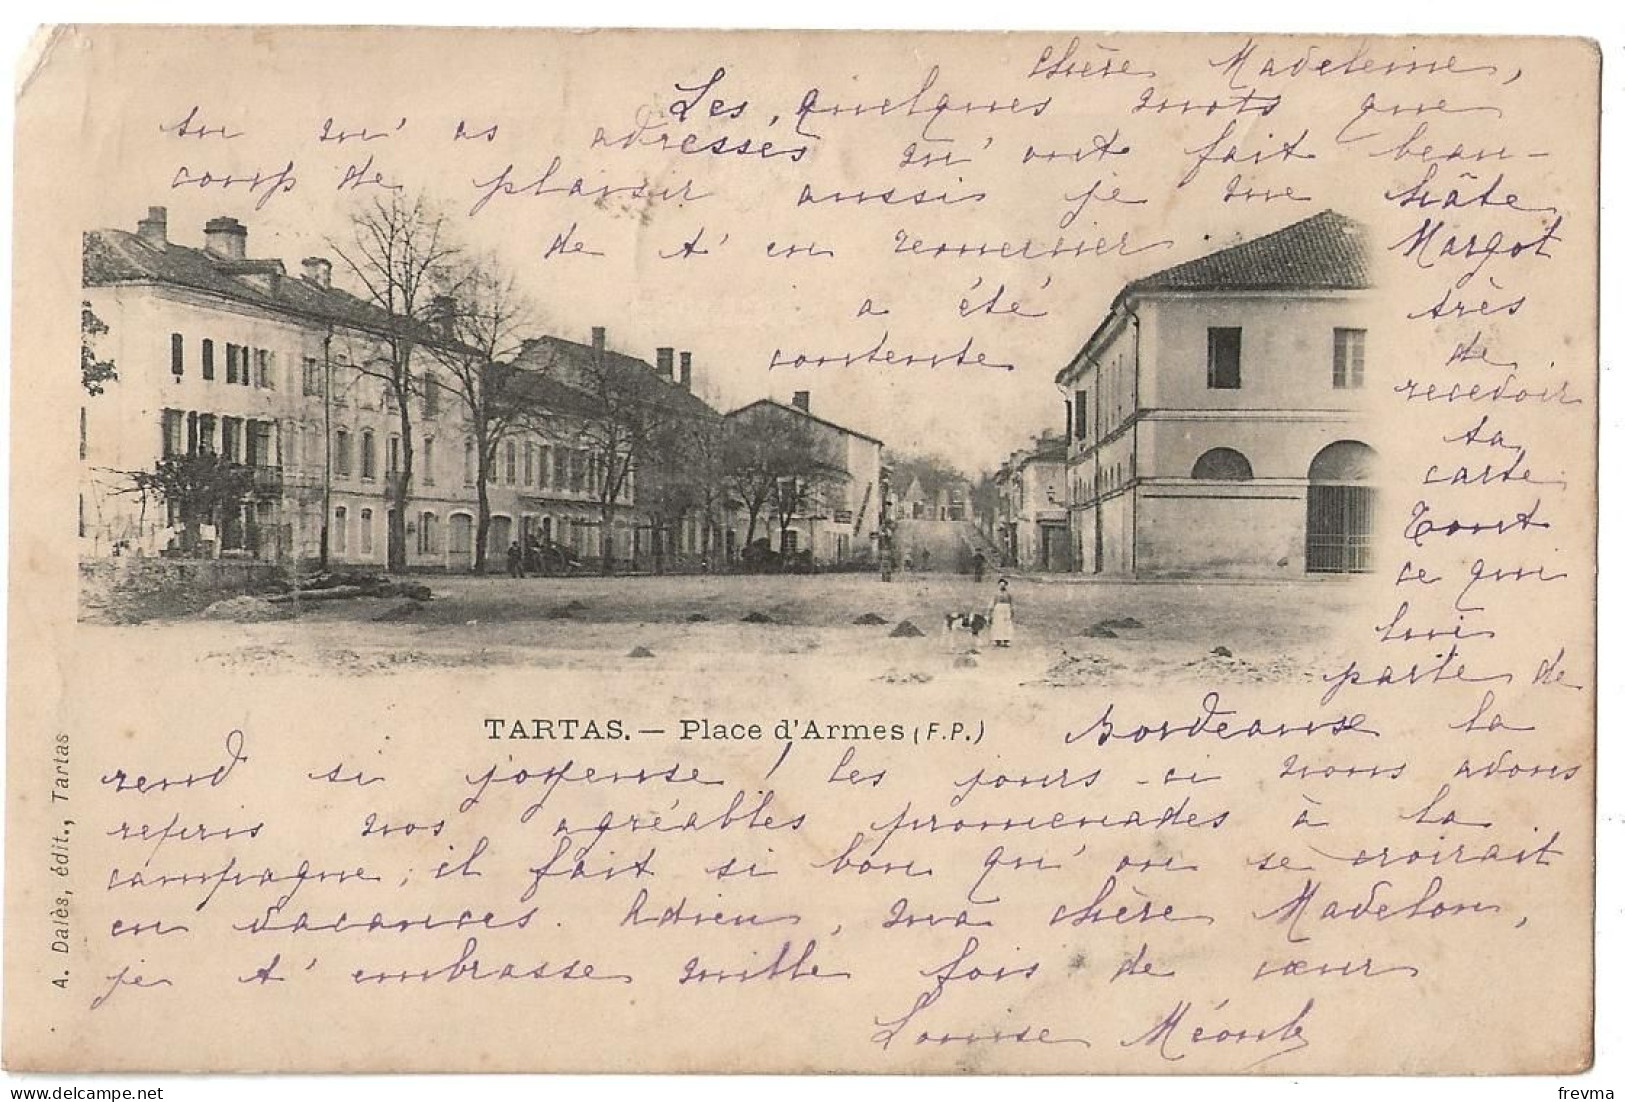 Chère Madeleine,
Les quelques mots que
tu m'as adressés m'ont fait beau-
coup de plaisir aussi je me hâte
de t'en remercier Margot
a été très
contente de
recevoir
ta
carte
Tout
ce qui
lui
parle de
TARTAS. — Place d'Armes (F.P.)
Bordeause la
rend si joyeuse ! les jours-ci nous avons
repris nos agréables promenades à la
campagne, il fait si bon qu'on se croirait
en vacances. Adieu, ma chère Madelon,
je t'embrasse mille fois de cœur
Louise
A. Dalès, édit., Tartas
frevma